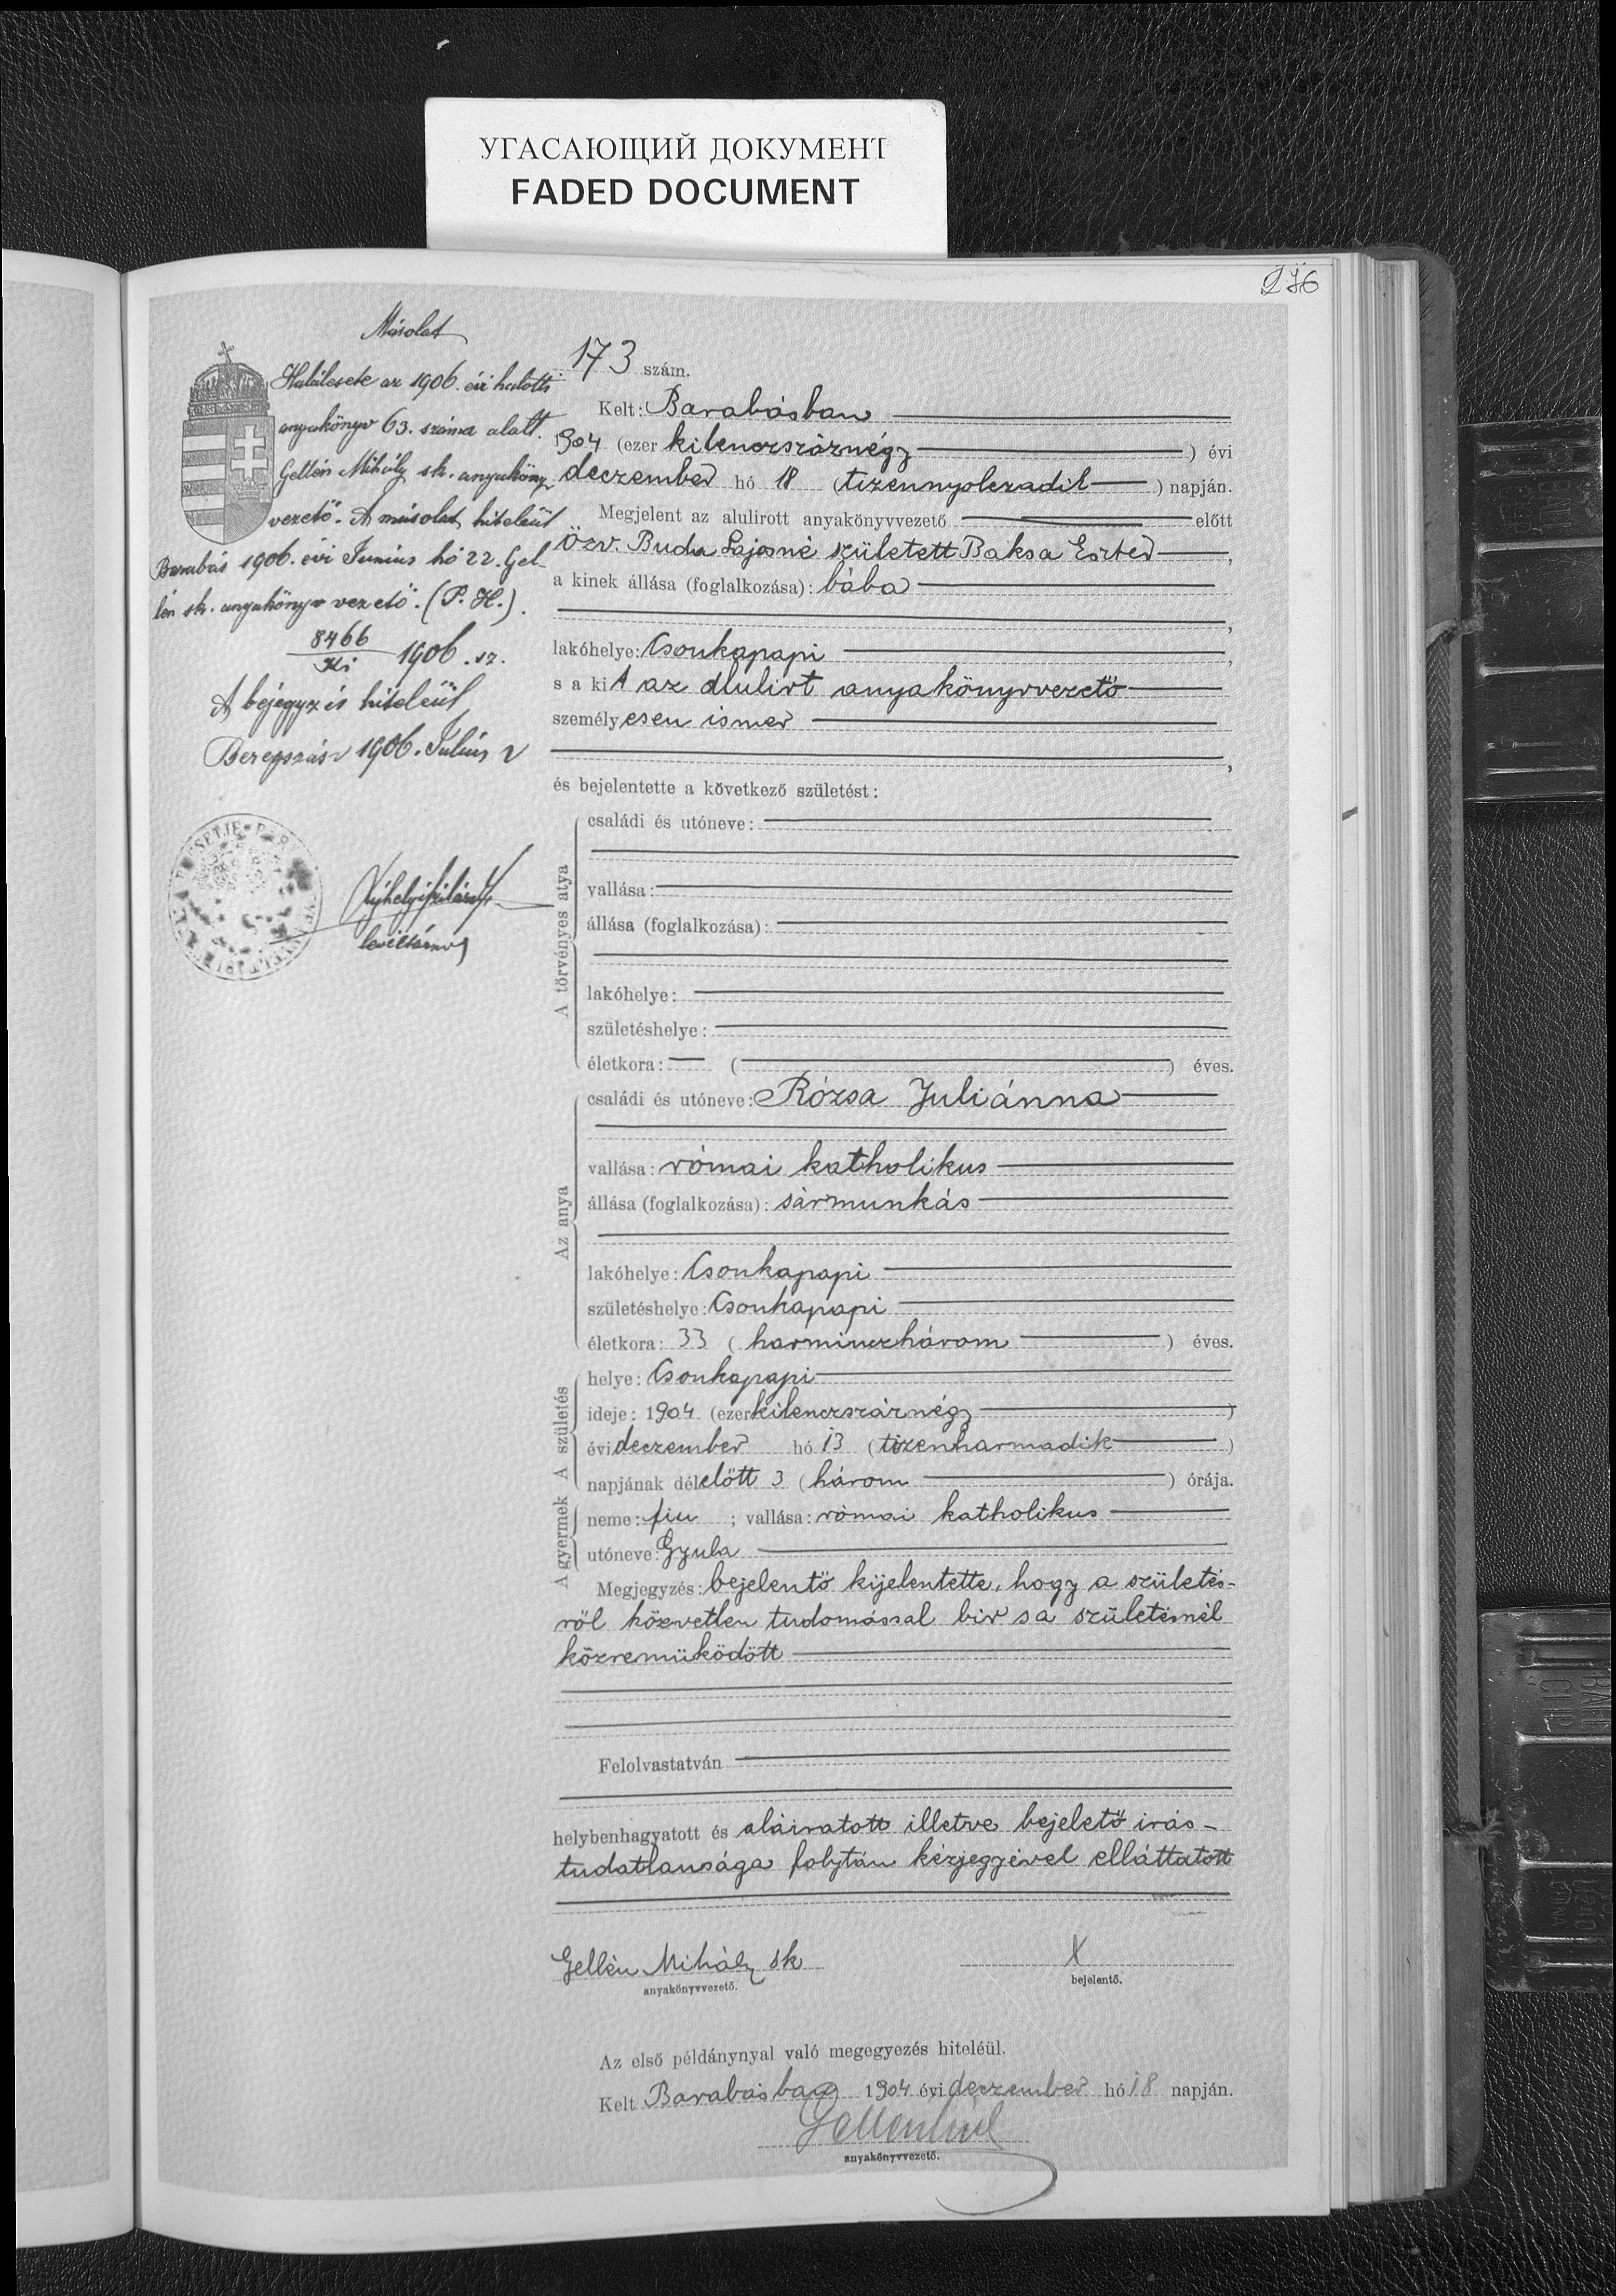 УГАСАЮЩИЙ ДОКУМЕНТ
FADED DOCUMENT
276
Másolat
Halálesete az 1906. évi halotti
anyakönyv 63. száma alatt.
Gellén Mihály sk. anyakönyv
vezető. A másolat hiteléül
Barabás 1906. évi Junius hó 22. Gel-
lén sk. anyakönyvvezető. (P. H.).
8466
1906. sz.
A bejegyzés hiteléül
Beregszász 1906. Július 2
levéltárnok
173 szám.
Kelt: Barabásban
1904 (ezer kilenczszáznégy ) évi
deczember hó 18 (tizennyolczadik ) napján.
Megjelent az alulirott anyakönyvvezető előtt
Özv. Buda Lajosné született Baksa Eszter ,
a kinek állása (foglalkozása): bába
,
lakóhelye: Csonkapapi ,
s a kit az alulirt anyakönyvvezető
személyesen ismer
,
és bejelentette a következő születést:
A törvényes atya
családi és utóneve:
vallása:
állása (foglalkozása):
lakóhelye:
születéshelye:
életkora: ( ) éves.
Az anya
családi és utóneve: Rózsa Juliánna
vallása: római katholikus
állása (foglalkozása): sármunkás
lakóhelye: Csonkapapi
születéshelye: Csonkapapi
életkora: 33 (harminczhárom ) éves.
A születés
helye: Csonkapapi
ideje: 1904 (ezer kilenczszáznégy )
évi deczember hó 13 (tizenharmadik )
napjának délelőtt 3 (három ) órája.
A gyermek
neme: fiu ; vallása: római katholikus
utóneve: Gyula
Megjegyzés: bejelentő kijelentette, hogy a születés-
ről közvetlen tudomással bir s a születésnél
közremüködött
Felolvastatván
helybenhagyatott és aláiratott illetve bejelető irás-
tudatlansága folytán kézjegyével elláttatott
Gellén Mihály sk X
anyakönyvvezető. bejelentő.
Az első példánynyal való megegyezés hiteléül.
Kelt Barabásban 1904 évi deczember hó 18 napján.
anyakönyvvezető.